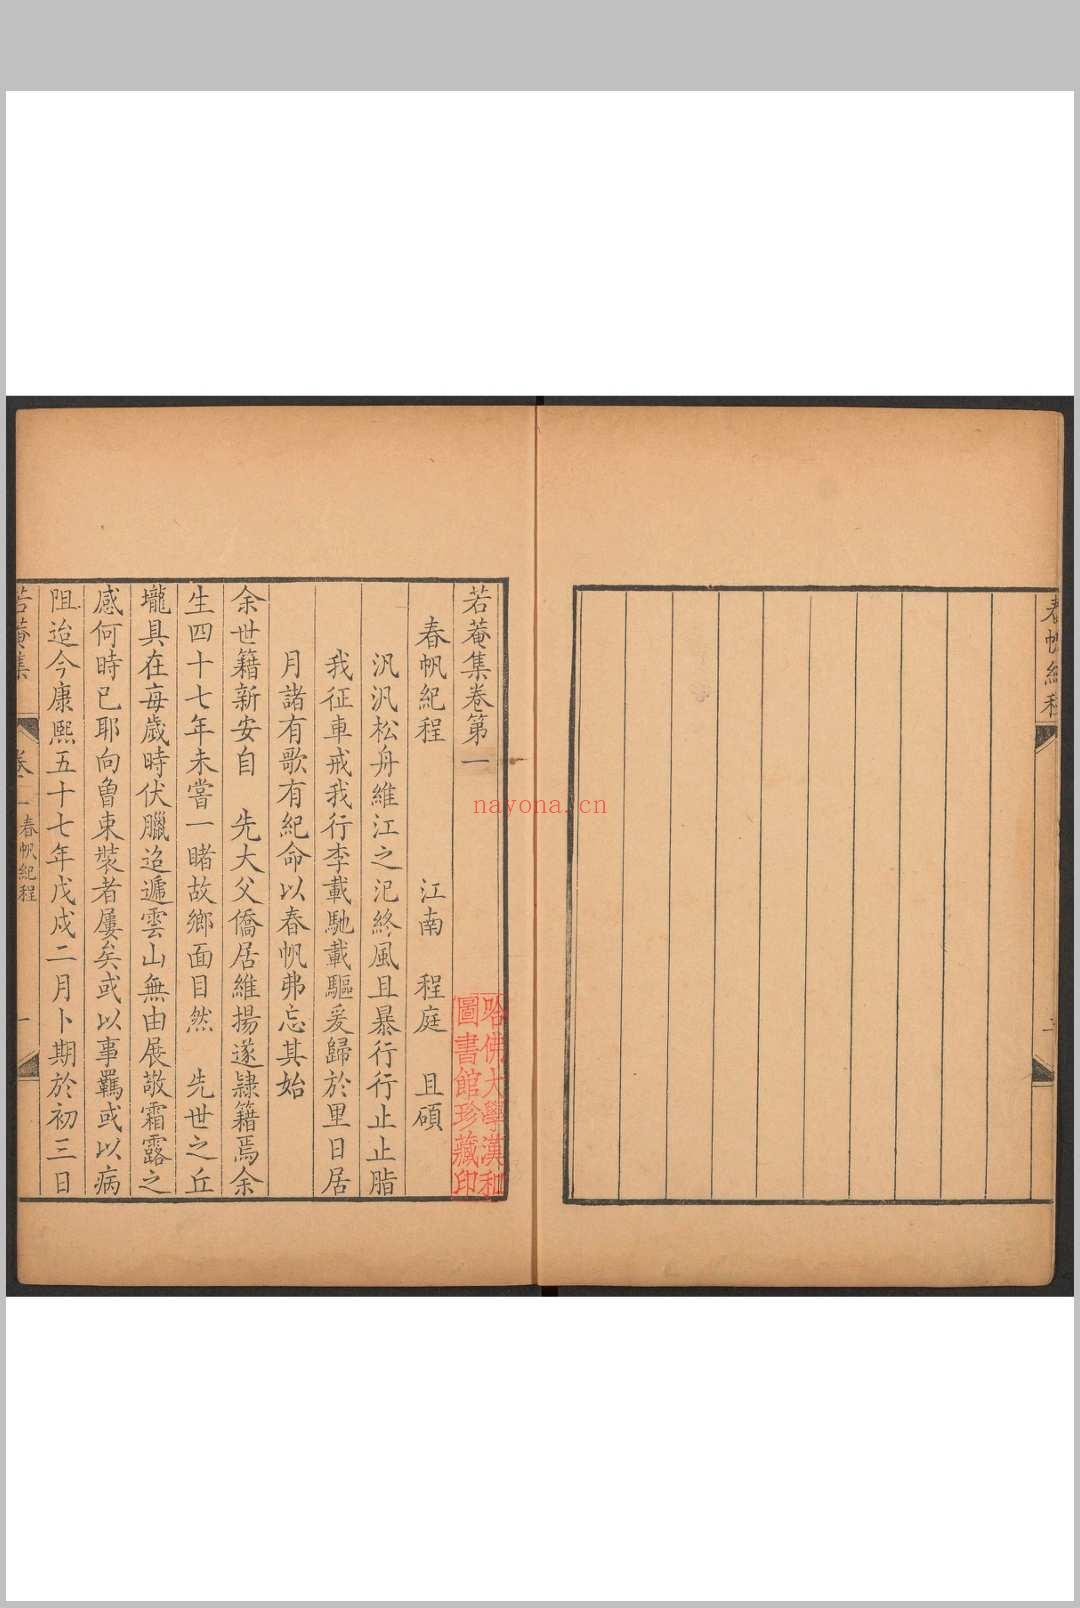 春帆紀程
若菴集卷第一
春帆紀程 江南 程庭 且碩
汎汎松舟維江之汜終風且暴行行止止脂
我征車戒我行李載馳載驅爰歸於里日居
月諸有歌有紀命以春帆弗忘其始
余世籍新安自 先大父僑居維揚遂隸籍焉余
生四十七年未嘗一睹故鄉面目然 先世之丘
壠具在每歲時伏臘迢遞雲山無由展敬霜露之
感何時已耶向曾束裝者屢矣或以事羈或以病
阻迨今康熙五十七年戊戌二月卜期於初三日
若菴集 卷一 春帆紀程 一
哈佛大學漢和
圖書館珍藏印
nayona.cn